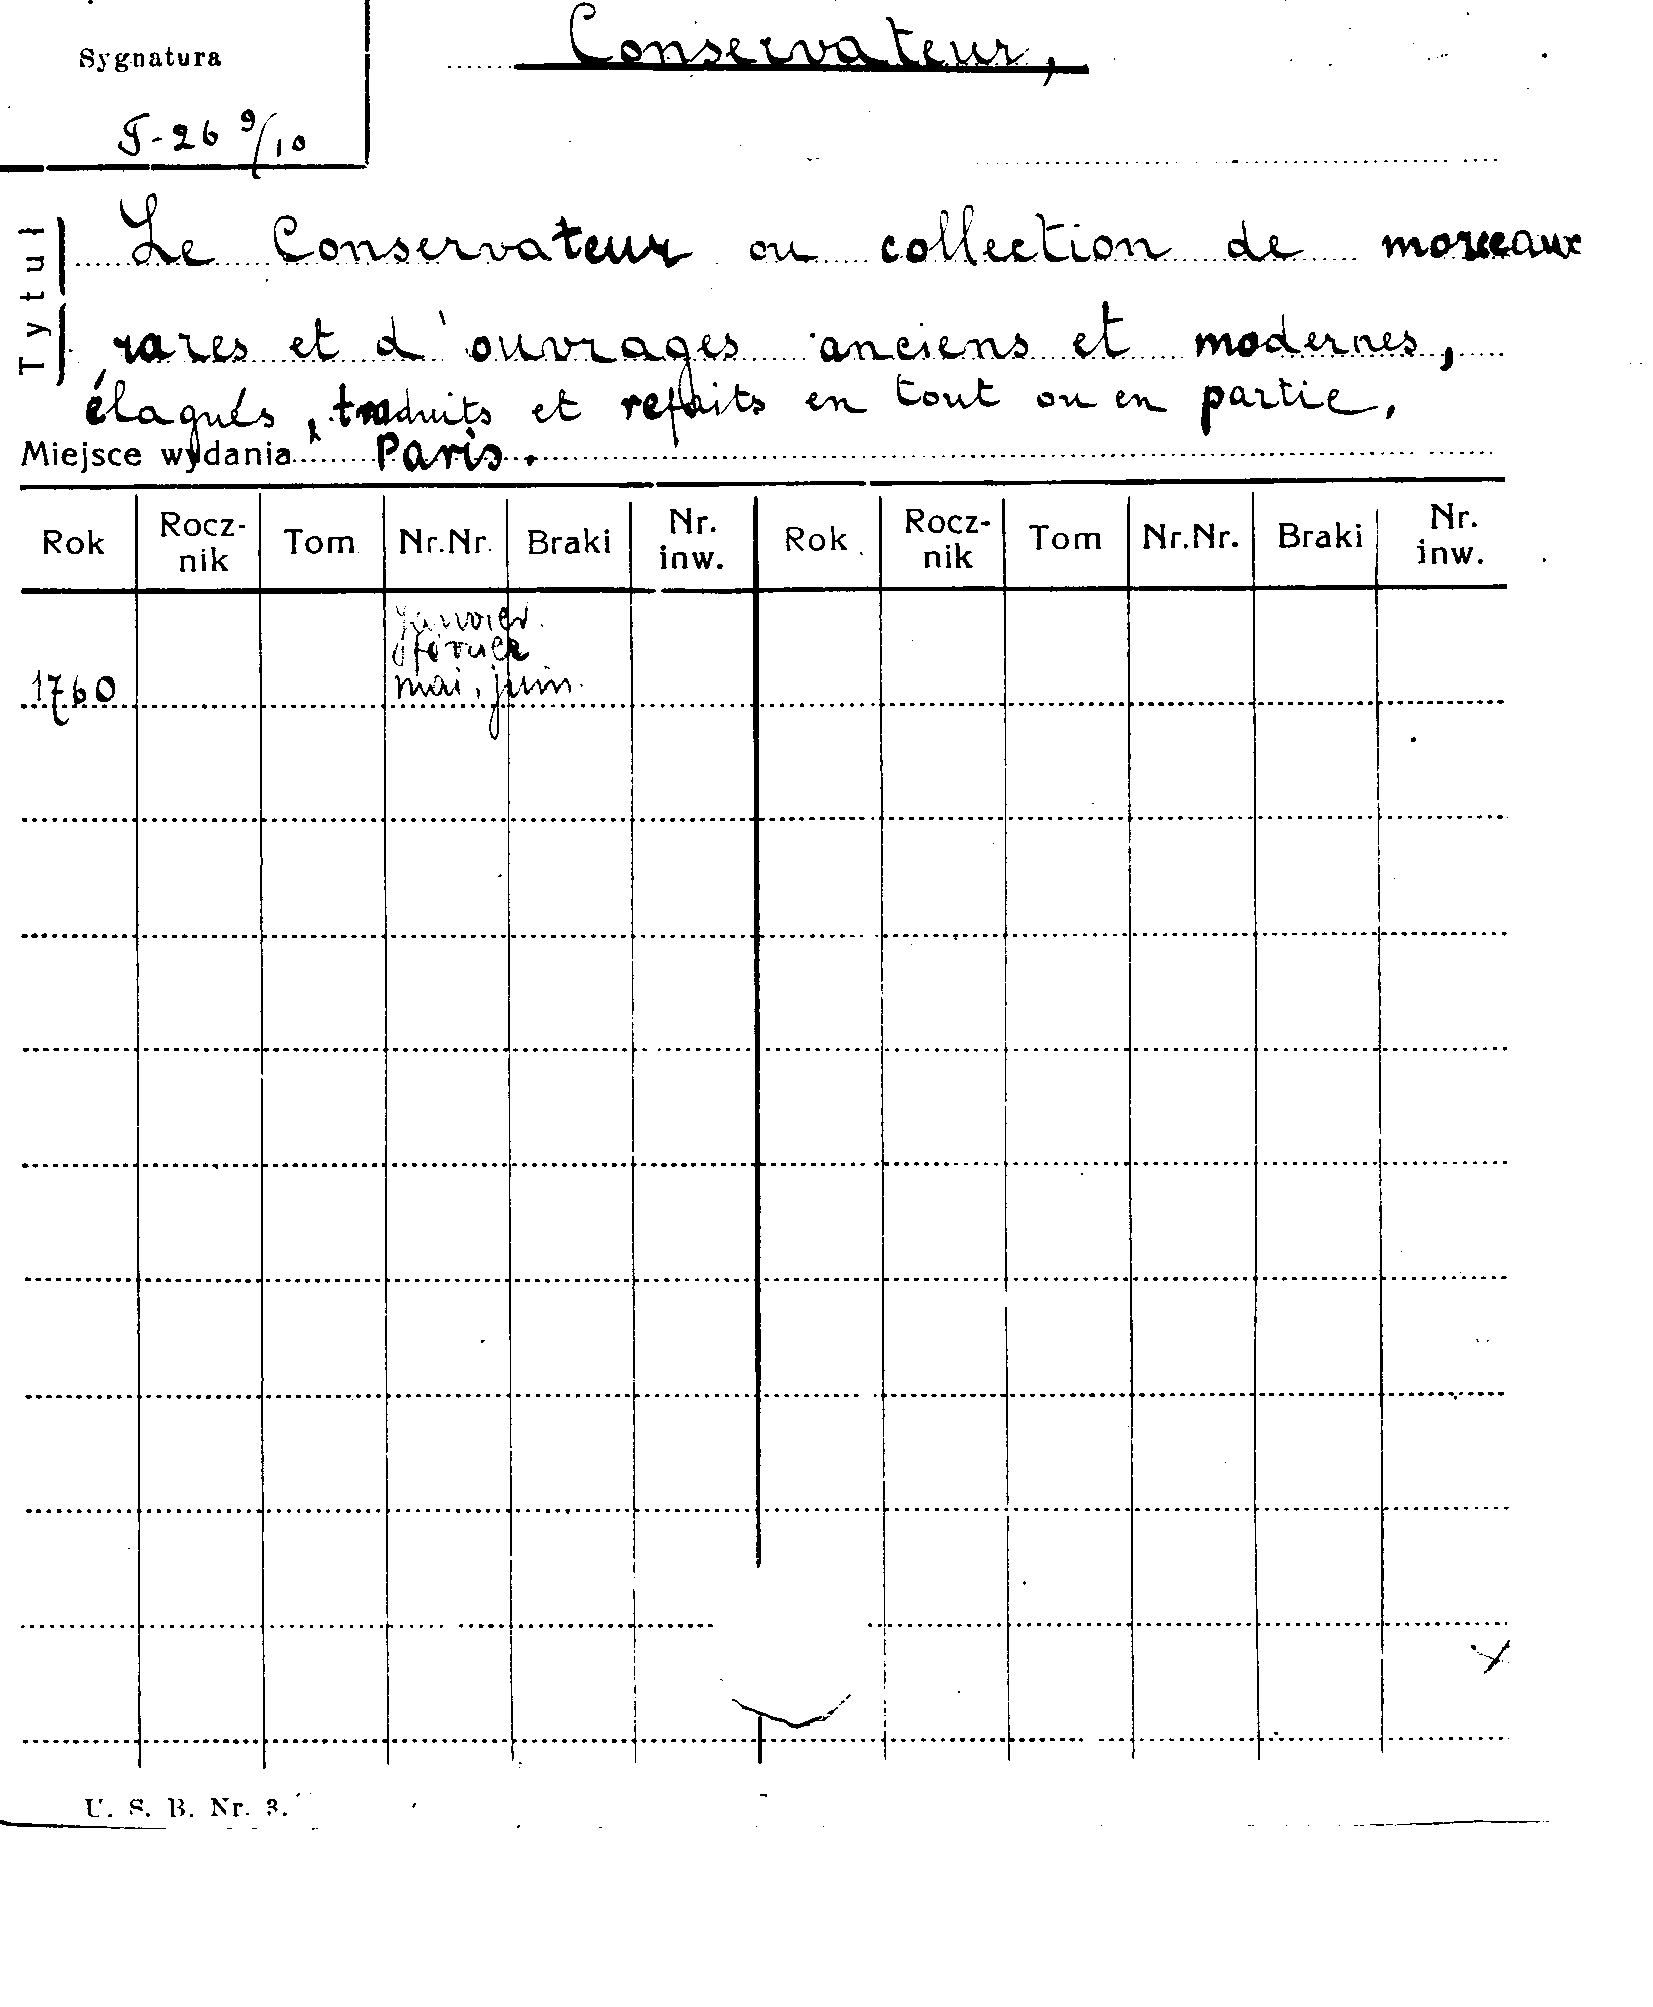 Sygnatura
Conservateur,
T-26 9/10
Tytuł
Le Conservateur ou collection de morceaux
rares et d'ouvrages anciens et modernes,
élagués, traduits et refaits en tout ou en partie.
Miejsce wydania Paris.
Rok Rocz-nik Tom Nr.Nr. Braki Nr. inw. Rok Rocz-nik Tom Nr.Nr. Braki Nr. inw.
janvier
février
1760 mai, juin.
U. S. B. Nr. 3.